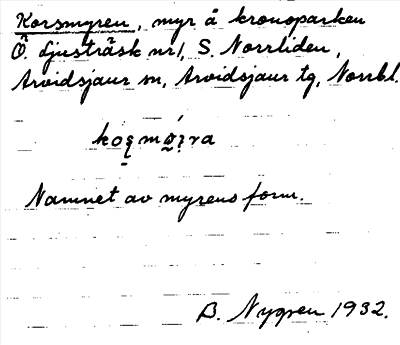 Korsmyren, myr å kronoparken
Ö. Ljusträsk nr 1, S. Norrliden,
Arvidsjaur sn, Arvidsjaur tg, Norrbl.
Namnet av myrens form.
B. Nygren 1932.